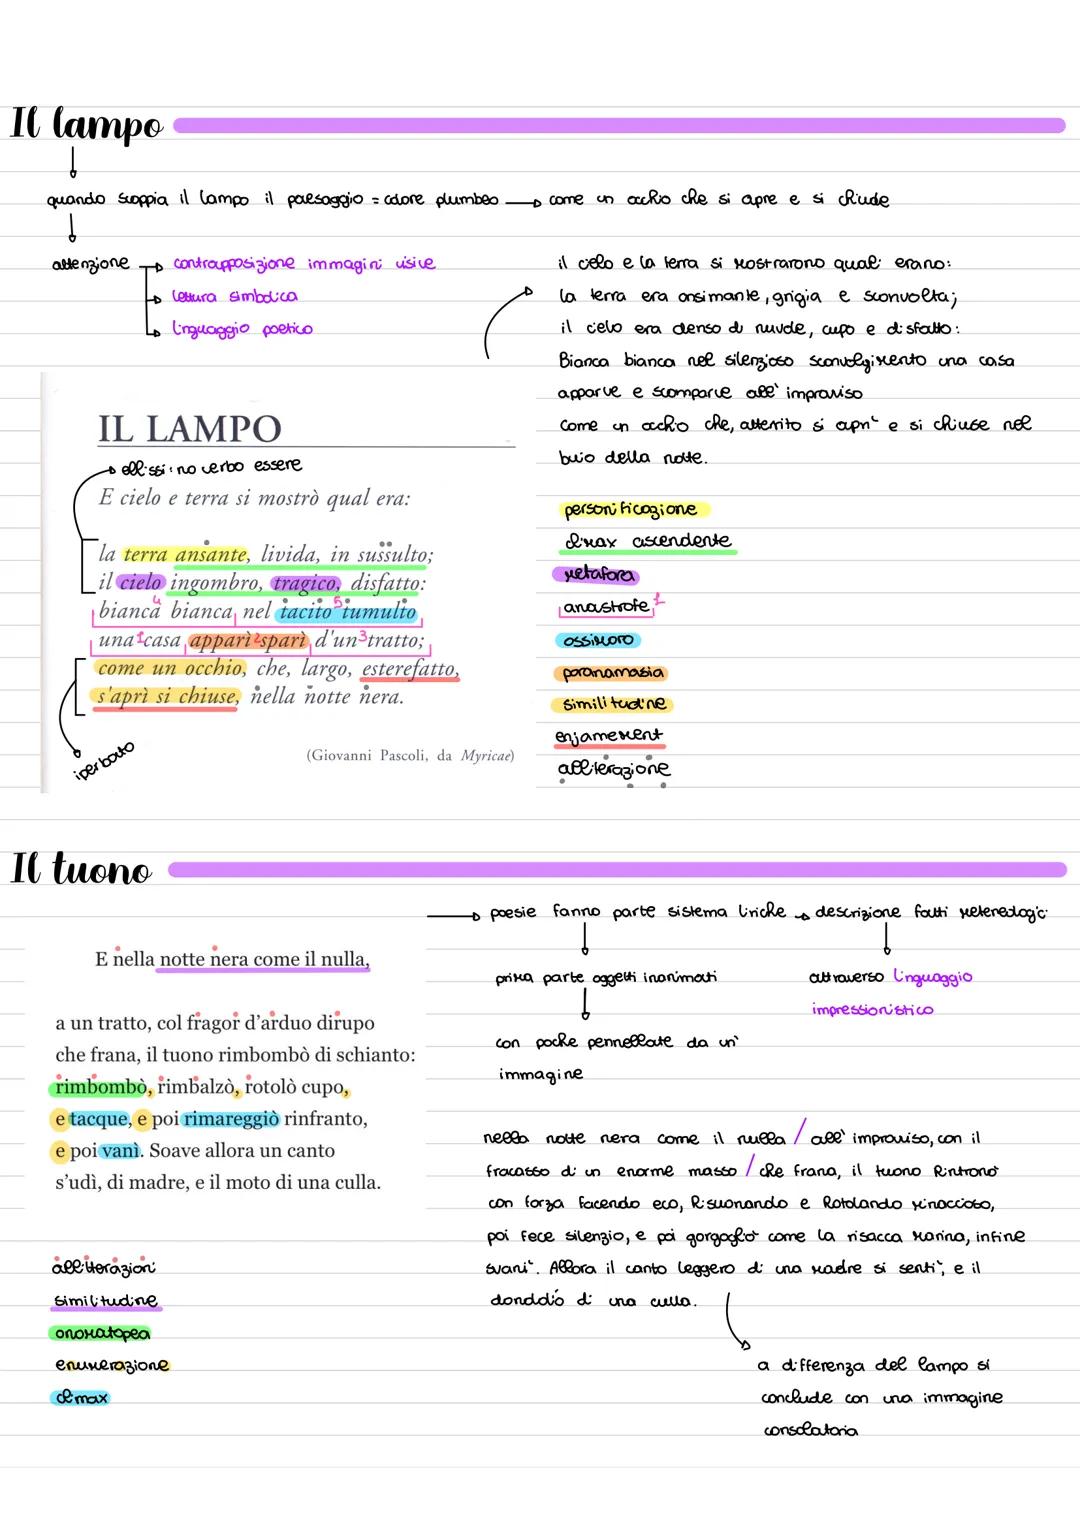 Il lampo
quando scoppia il lampo il paesaggio = colore plumbeo → come un occhio che si apre e si chiude
attenzione → contrapposizione immagini visive
→ lettura simbolica
→ linguaggio poetico
il cielo e la terra si mostrarono quali erano:
la terra era ansimante, grigia e sconvolta;
il cielo era denso di nuvole, cupo e disfatto:
Bianca bianca nel silenzioso sconvolgimento una casa
apparve e scomparve all' improvviso
Come un occhio che, atterrito si aprì e si chiuse nel
buio della notte.
IL LAMPO
ellissi: no verbo essere
E cielo e terra si mostrò qual era:
la terra ansante, livida, in sussulto;
il cielo ingombro, tragico, disfatto:
bianca bianca nel tacito tumulto
una casa apparì sparì d'un tratto;
come un occhio, che, largo, esterefatto,
s'aprì si chiuse, nella notte nera.
iperbato
(Giovanni Pascoli, da Myricae)
4
5
1
2
3
personificazione
climax ascendente
metafora
anastrofe 1
ossimoro
paranomasia
similitudine
enjamement
allterazione
Il tuono
→ poesie fanno parte sistema liriche → descrizione fatti metereologici
E nella notte nera come il nulla,
a un tratto, col fragor d'arduo dirupo
che frana, il tuono rimbombò di schianto:
rimbombò, rimbalzò, rotolò cupo,
e tacque, e poi rimareggiò rinfranto,
e poi vanì. Soave allora un canto
s'udì, di madre, e il moto di una culla.
prima parte oggetti inanimati
con poche pennellate da un'
immagine
attraverso linguaggio
impressionistico
nella notte nera come il nulla / all' improvviso, con il
fracasso di un enorme masso / che frana, il tuono Rintronò
con forza facendo eco, Risuonando e Rotolando minaccioso,
poi fece silenzio, e poi gorgogliò come la risacca marina, infine
svanì. Allora il canto leggero di una madre si sentì, e il
dondolò di una culla.
a differenza del lampo si
conclude con una immagine
consolatoria
allitterazioni
similitudine
onomatopea
enumerazione
climax